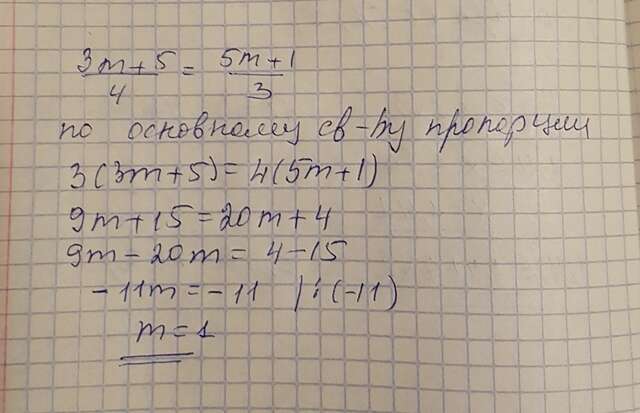 3m+5/4 = 5m+1/3
по основному св-ву пропорции
3(3m+5)=4(5m+1)
9m+15=20m+4
9m-20m=4-15
-11m=-11 |:(-11)
m=1